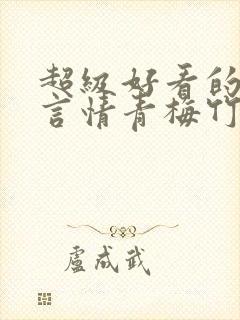 超級好看的
言情青梅竹
盧成武